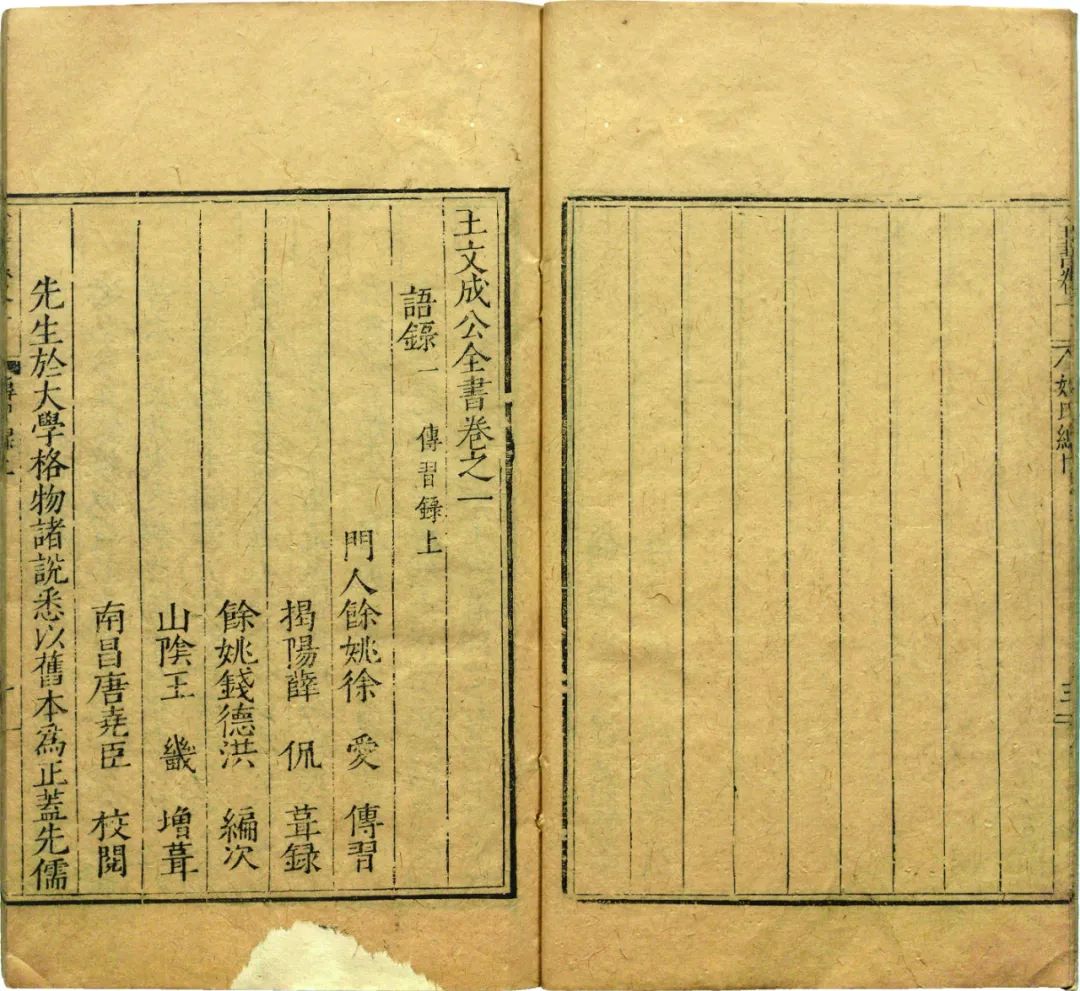 王文成公全書卷之一
語錄一 傳習錄上
門人餘姚徐 愛 傳習
揭陽薛 侃 葺録
餘姚錢德洪 編次
山陰王 畿 增葺
南昌唐堯臣 校閱
先生於大學格物諸說悉以舊本爲正蓋先儒